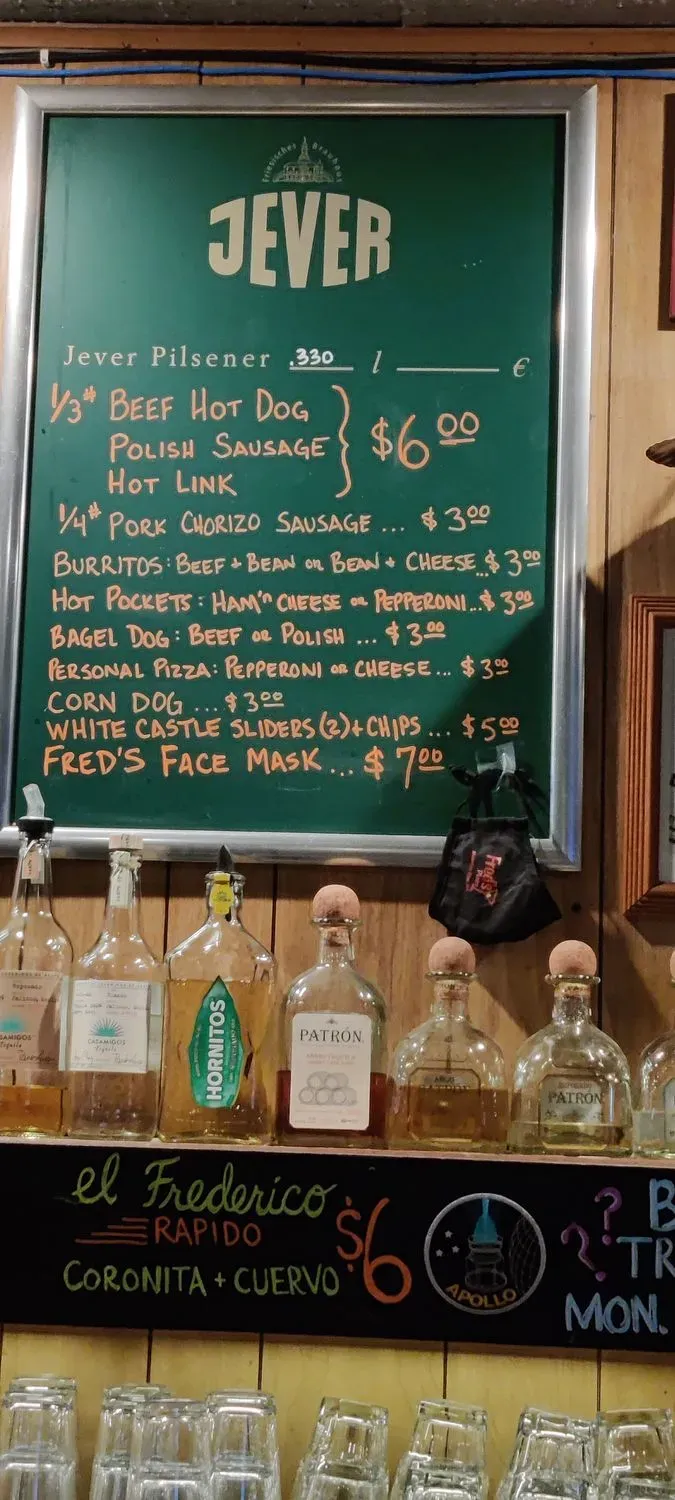 Friesisches Brauhaus
JEVER
Jever Pilsener .330 l ______ €
1/3# BEEF HOT DOG
POLISH SAUSAGE
HOT LINK
$6 00
1/4# PORK CHORIZO SAUSAGE ... $3 00
BURRITOS: BEEF + BEAN OR BEAN + CHEESE...$3 00
HOT POCKETS: HAM'n CHEESE OR PEPPERONI...$3 00
BAGEL DOG: BEEF OR POLISH ... $3 00
PERSONAL PIZZA: PEPPERONI OR CHEESE... $3 00
CORN DOG ... $3 00
WHITE CASTLE SLIDERS (2)+CHIPS ... $5 00
FRED'S FACE MASK... $7 00
Fred's
Reposado
CASAMIGOS
Tequila
CASAMIGOS
Tequila
HORNITOS
PATRÓN
AÑEJO
REPOSADO
PATRÓN
el Frederico
RAPIDO
CORONITA + CUERVO
$6
APOLLO
? ?
B
TR
MON.